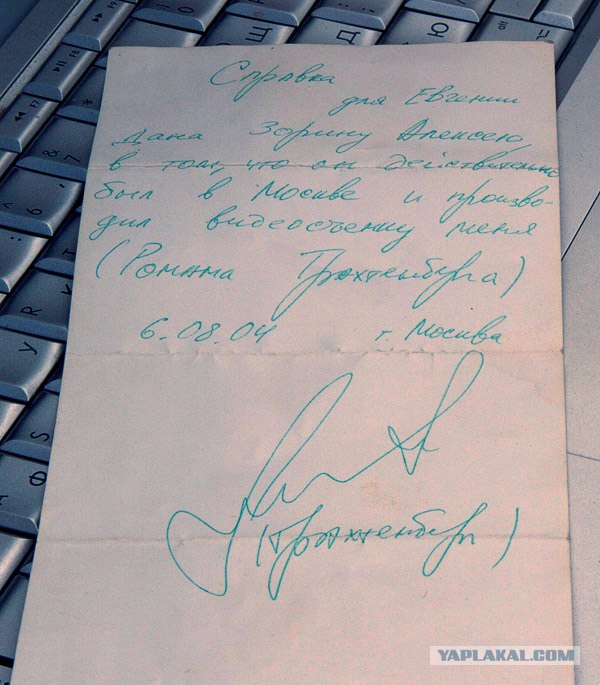 Справка
для Евгении
Дана Зорину Алексею,
в том, что он действительно
был в Москве и произво-
дил видеосъемку меня
(Романа Трахтенберга)
6.08.04 г. Москва
(Трахтенберг)
YAPLAKAL.COM